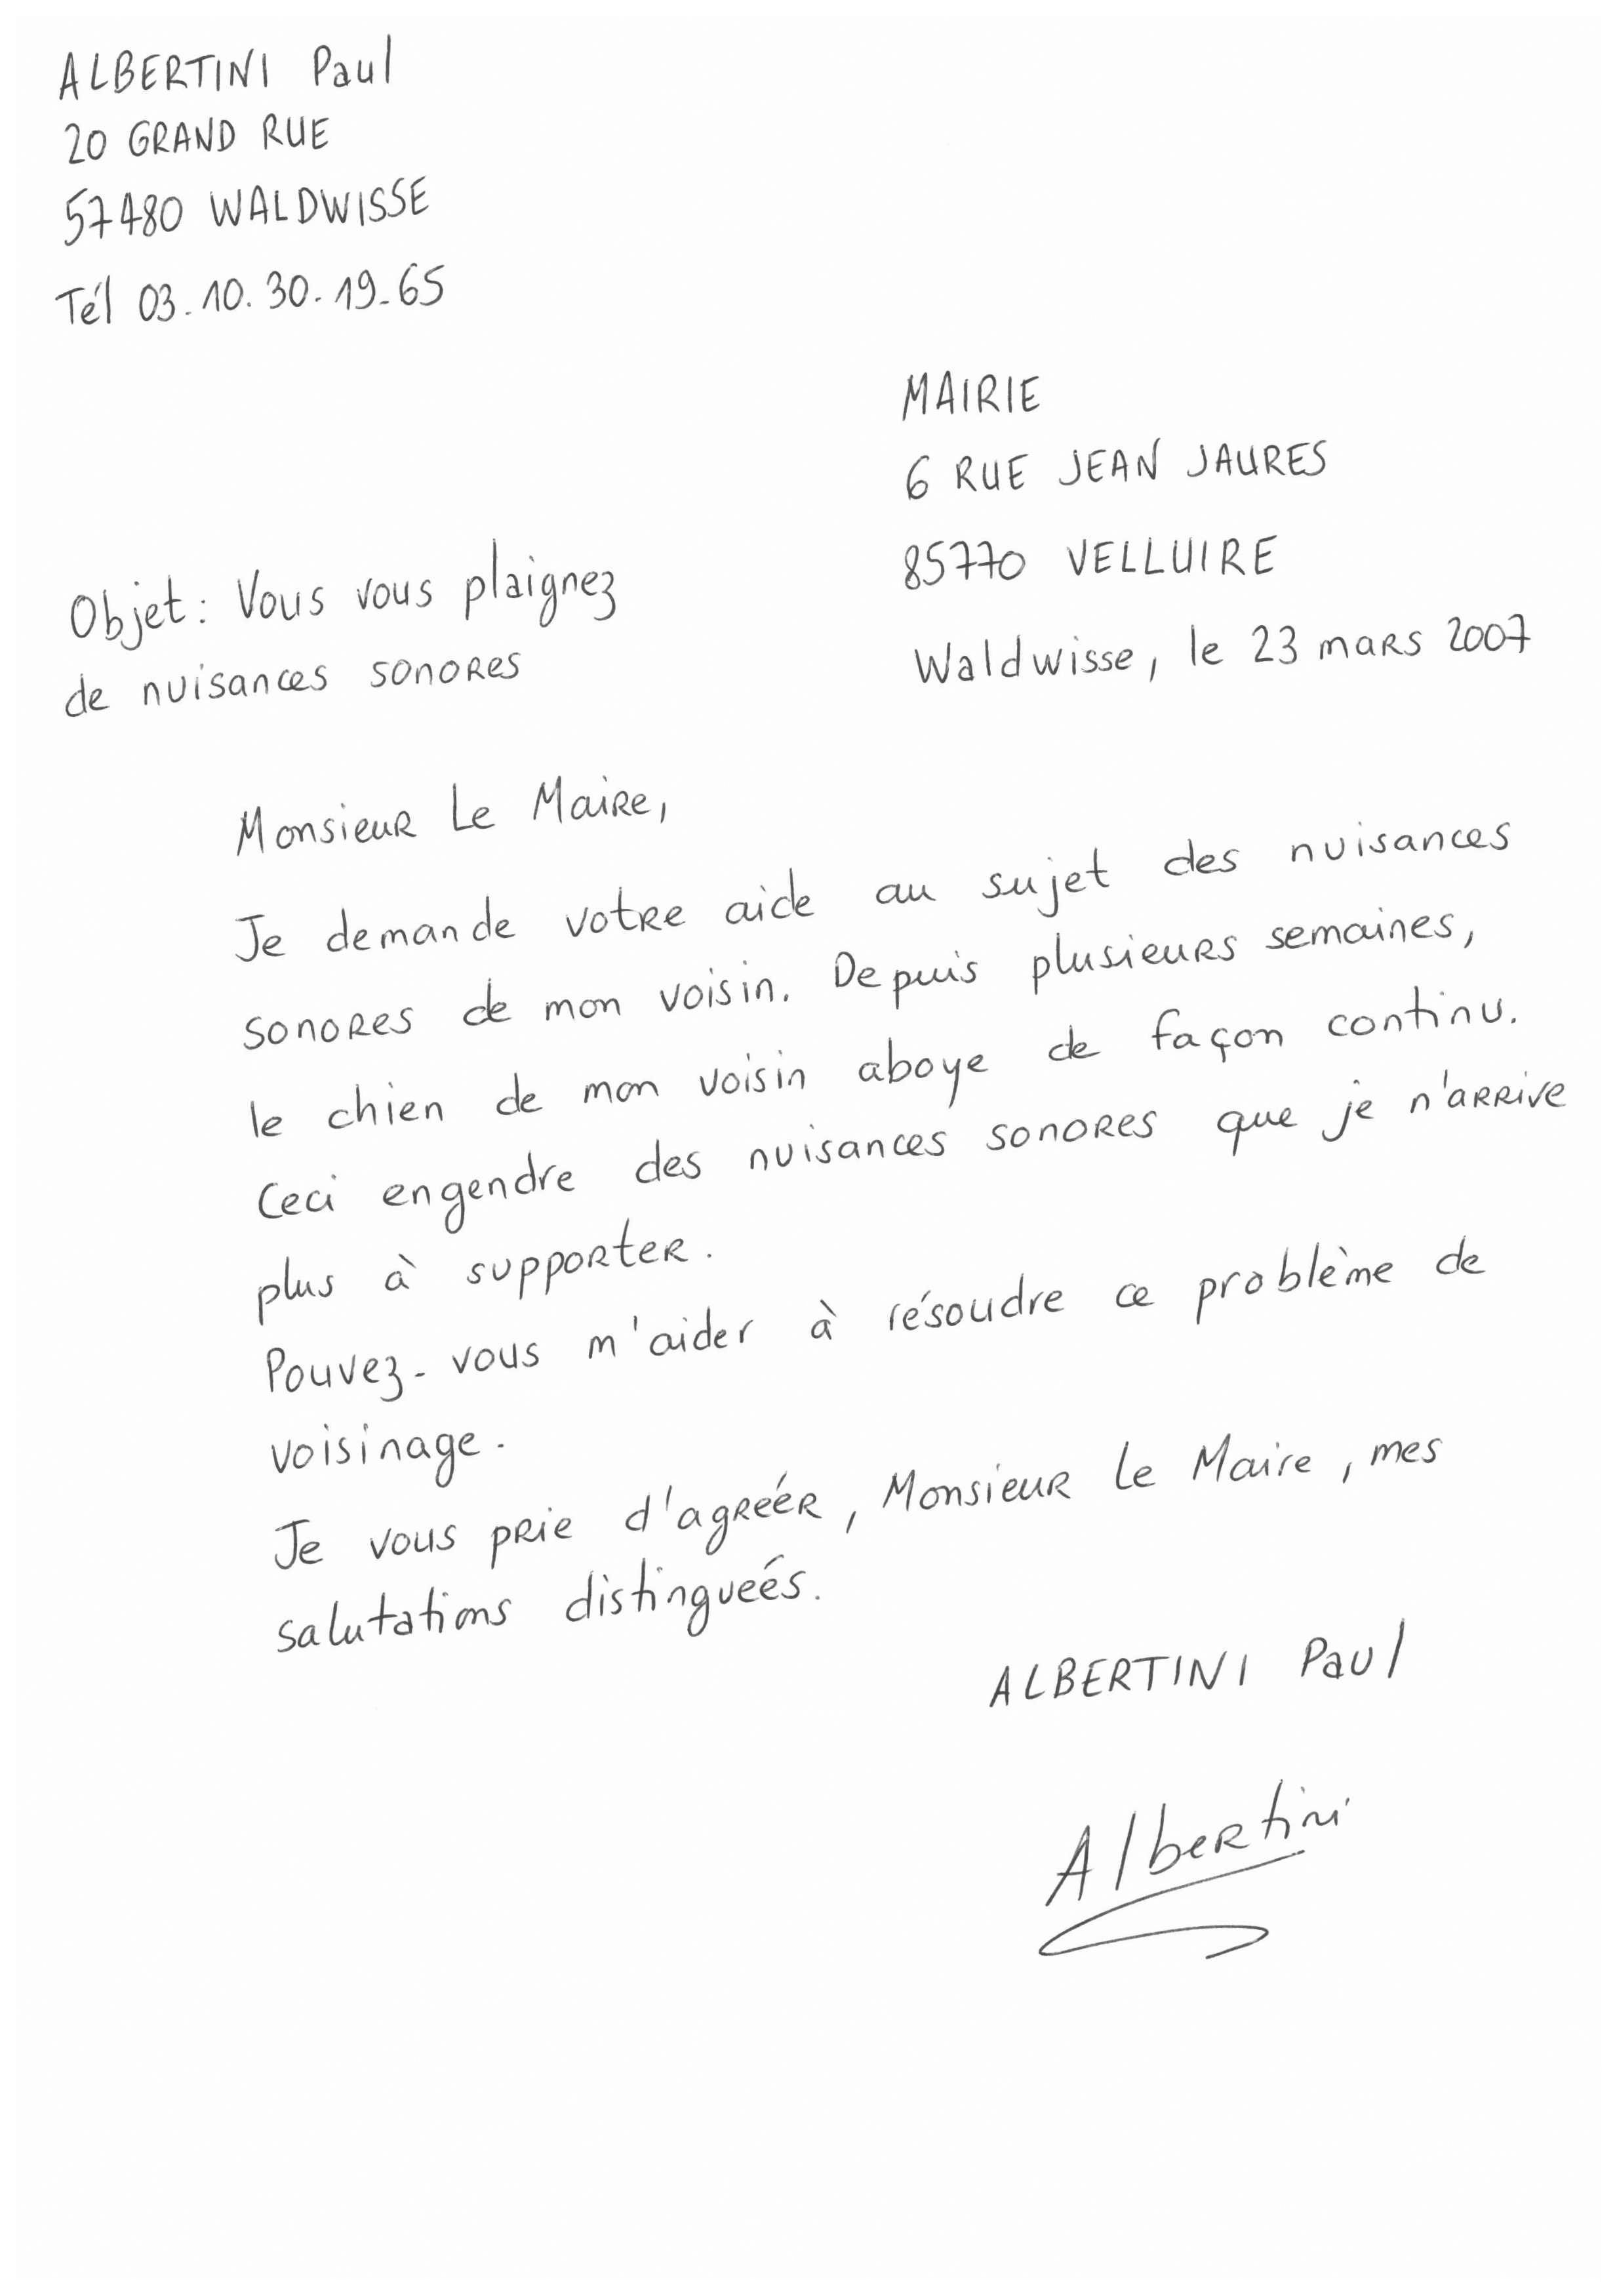 ALBERTINI Paul
20 GRAND RUE
57480 WALDWISSE
Tél 03.10.30.19.65
MAIRIE
6 RUE JEAN JAURES
85770 VELLUIRE
Objet : Vous vous plaignez
de nuisances sonores
Waldwisse, le 23 mars 2007
Monsieur Le Maire,
Je demande votre aide au sujet des nuisances
sonores de mon voisin. Depuis plusieurs semaines,
le chien de mon voisin aboye de façon continu.
Ceci engendre des nuisances sonores que je n'arrive
plus à supporter.
Pouvez-vous m'aider à résoudre ce problème de
voisinage.
Je vous prie d'agréer, Monsieur Le Maire, mes
salutations distinguées.
ALBERTINI Paul
Albertini